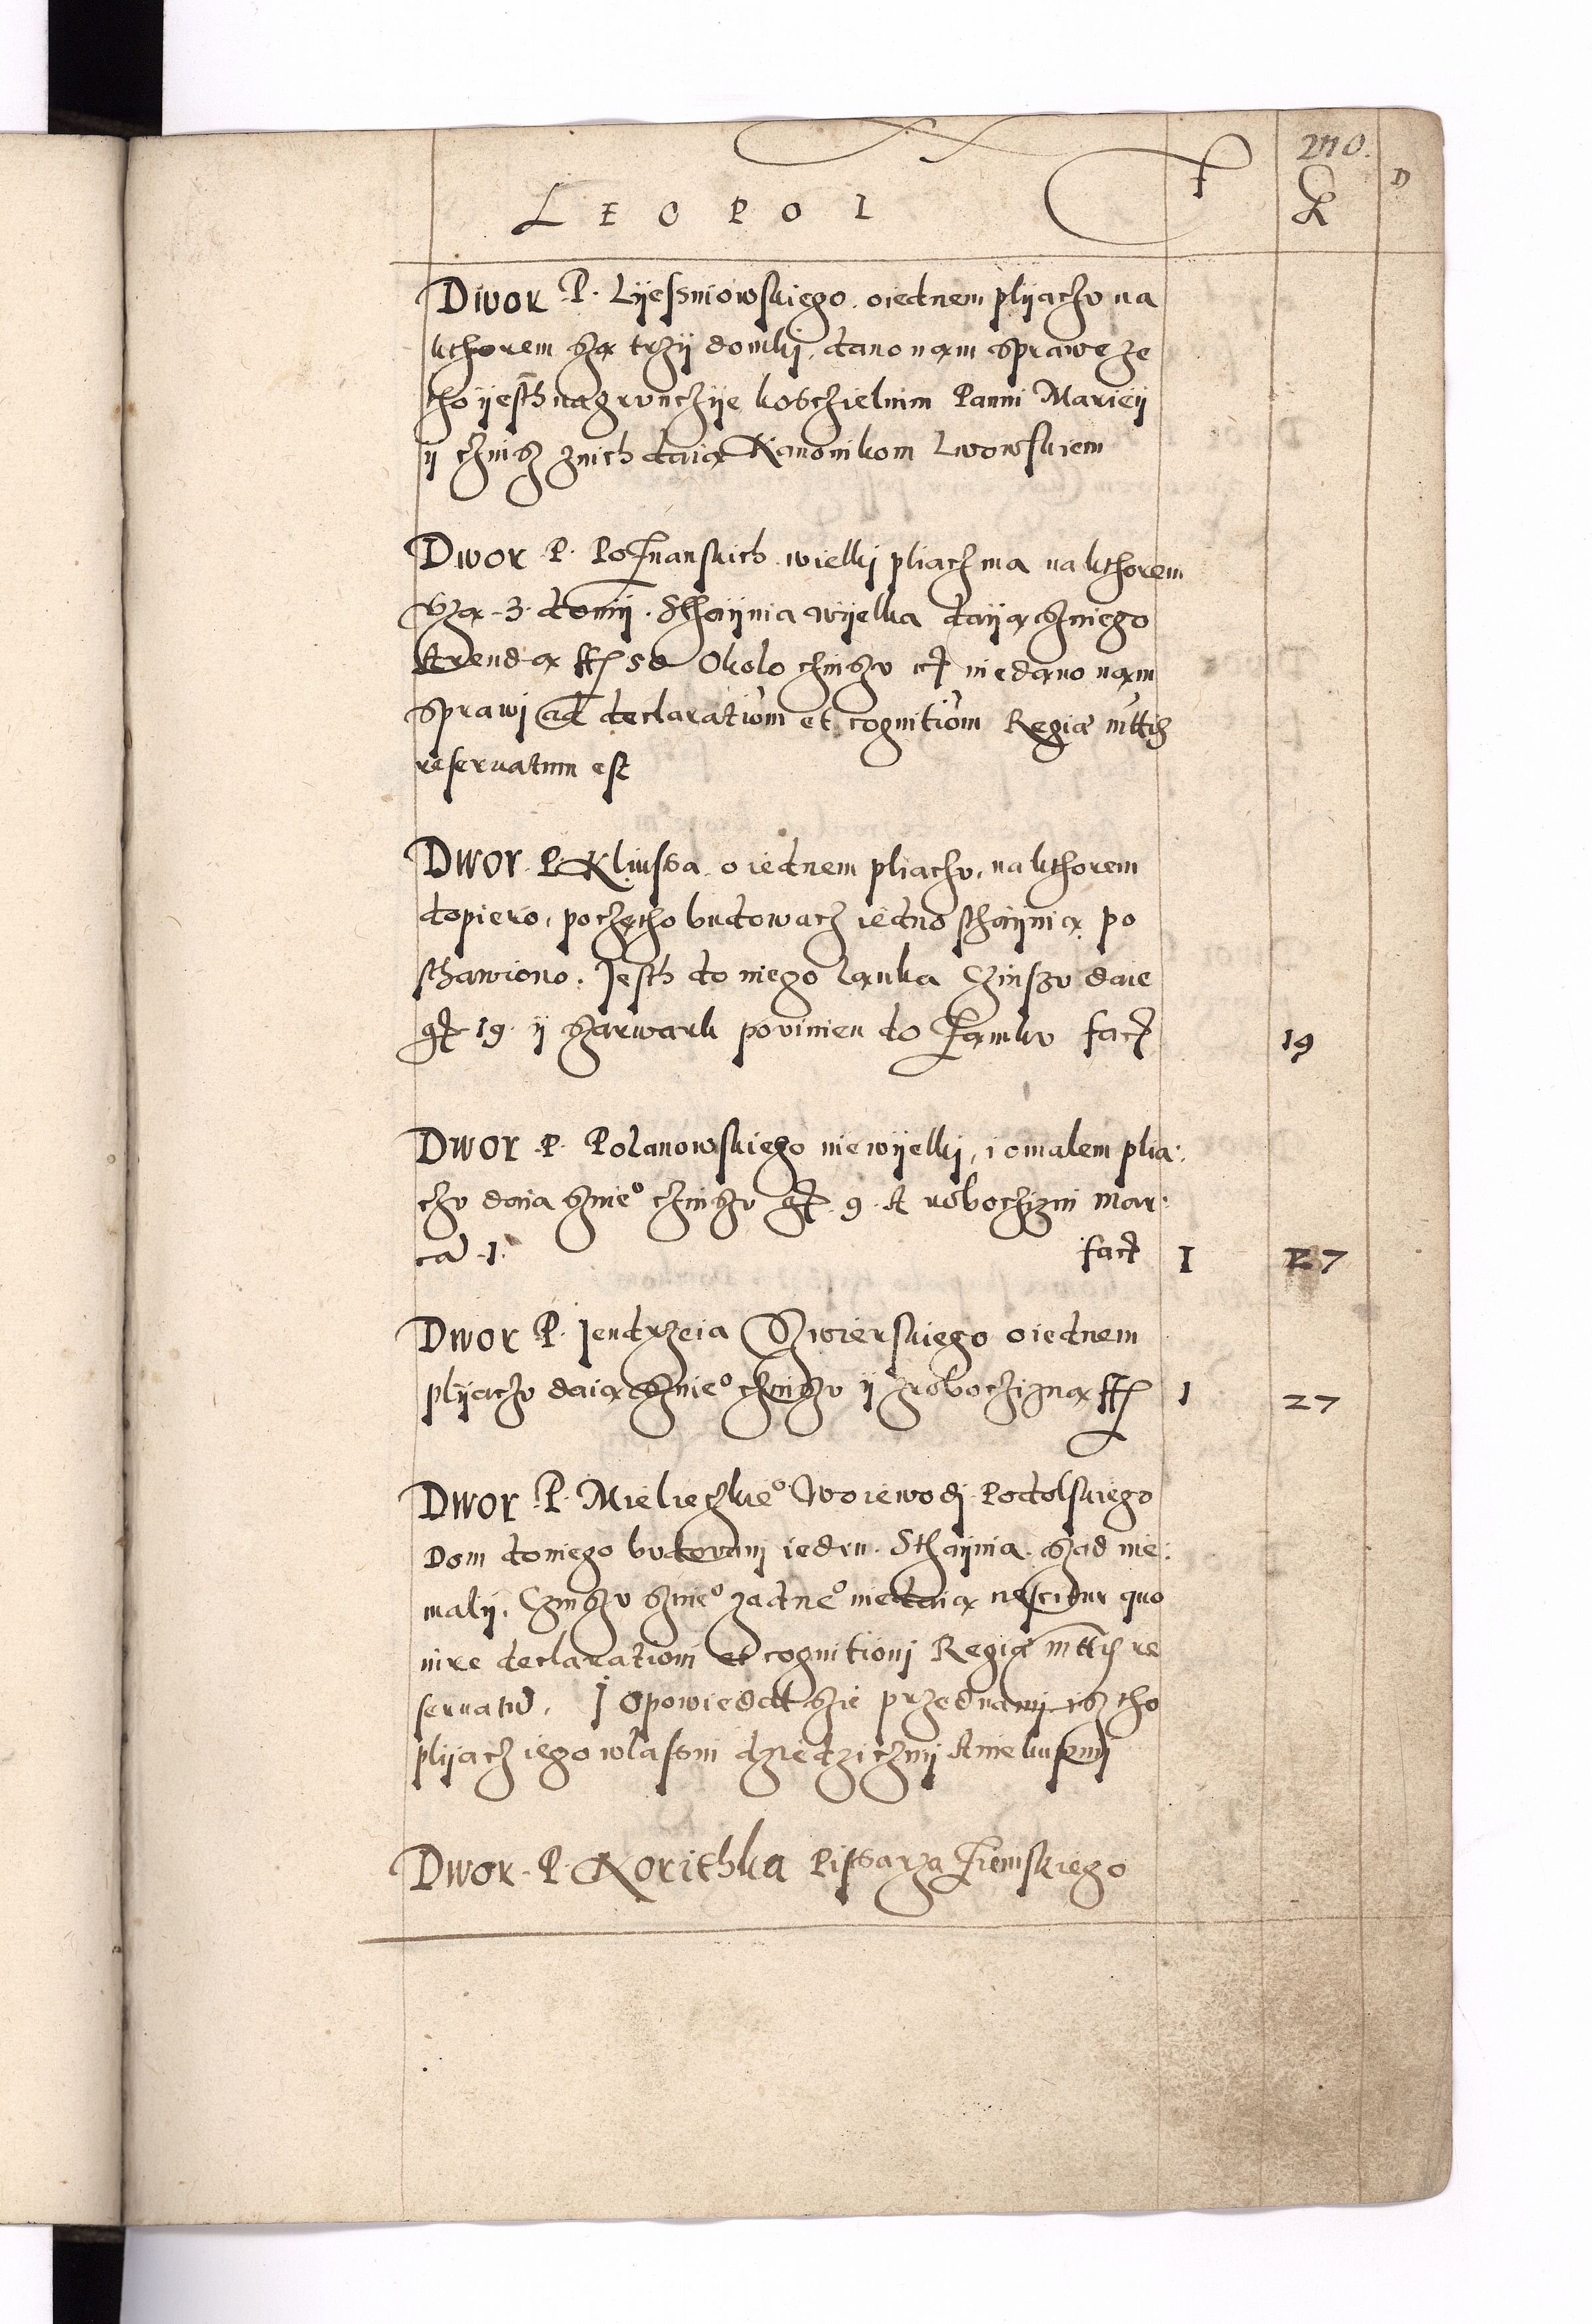 210.
LEOPOI F G D
Dwor P. Lyessniowskiego. oiednem plyaczv na
kthorem sza trzy domki, dano nam sprawę ze
tho yesth na grvnczye kosczielnim Panni Marieÿ
y czinsz znich daią Kanonikom Lwowskiem
Dwor P. Poznanskich wielki pliacz ma na kthorem
sza 3 domÿ. Sthaÿnia wÿelka daÿą szniego
Arendą ff 50 Okolo czinszv niedano nam
sprawi ad declaration et cognition Regiæ mttis
reseruatum est
Dwor P. Klivssa. o iednem pliaczv, na kthorem
dopiero, poczętho budowacz iedno sthaÿnią po
sthawiono. Jesth do niego lanka Czinszv daie
gr 19. ÿ szarwark povinien do Zamkv fact 19
Dwor P. Polanowskiego niewÿelki, i omalem plia:
czv daia snie° czinszv gr. 9. A robochizni mar:
ca 1. fact I 27
Dwor P. Jendrzeia Swierskiego oiednem
plÿaczv daią sznie° czinszv ÿ zrobochizną ff 1 27
Dwor P. Mielieczkie° Woiewodi Podolskiego
Dom doniego budovani iedin. Sthaÿnia. szad nie:
malÿ. Czinszv sznie° zadne° niedaią nescitur quo
iure declarationi et cognitioni Regiæ mttis re
seruatur. J Opowiedal szie przednami isz tho
plÿacz iego wlassni dziedzicznÿ A nie kupnÿ
Dwor P. Korithka Pissarza Ziemskiego